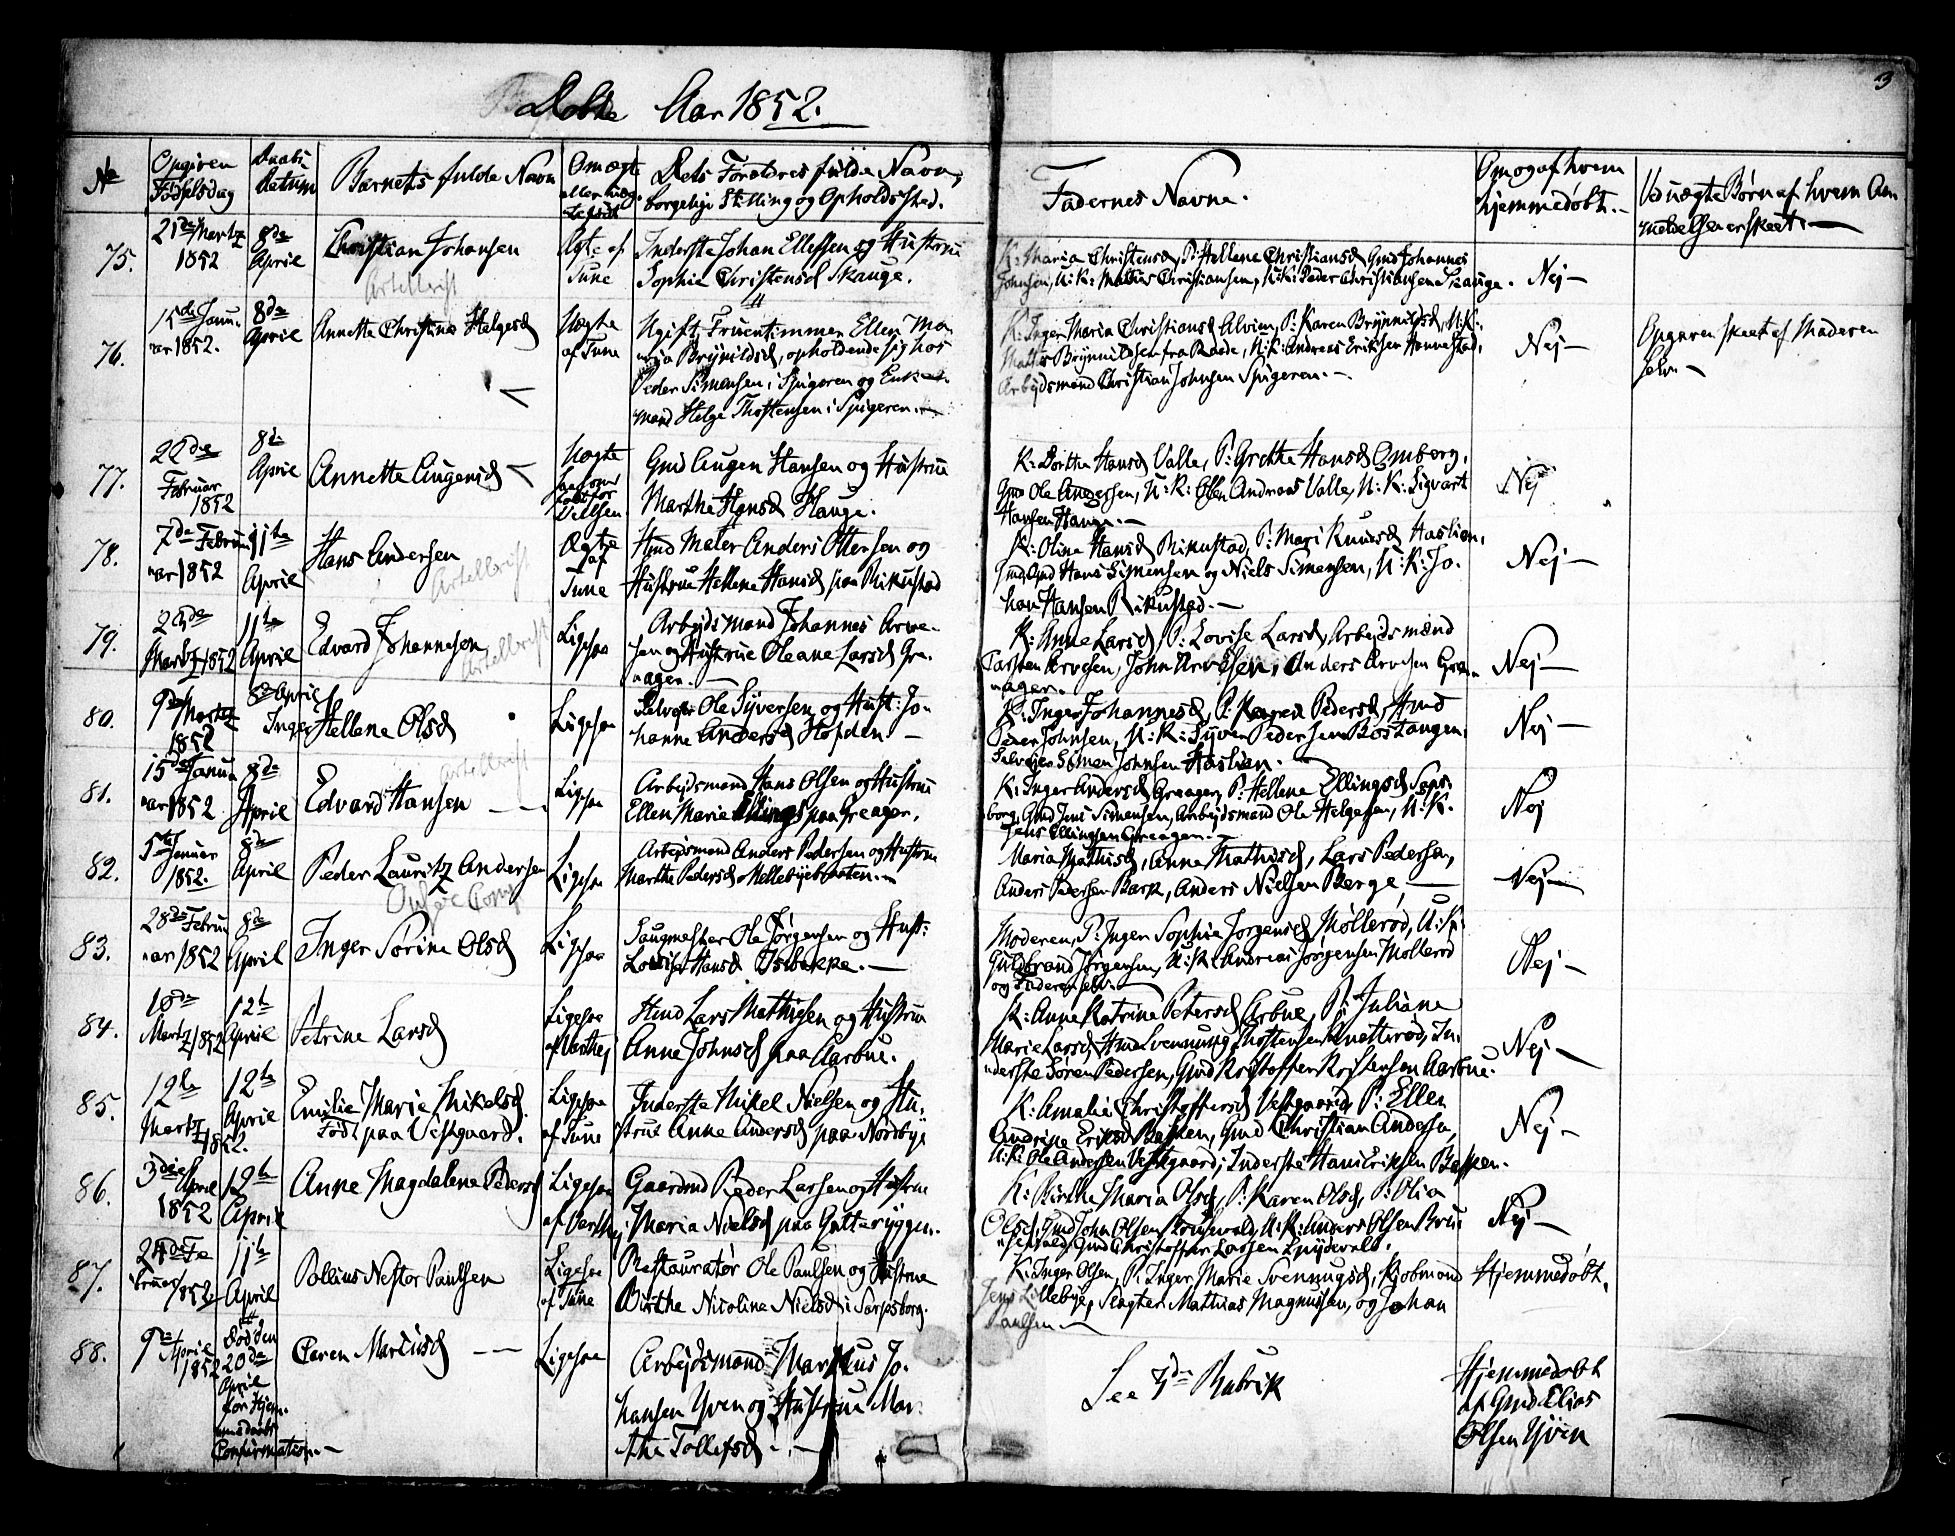 Døbte Aar 1852.
3
No
Opgiven Fødselsdag
Daabs Datum
Barnets fulde Navn
Om ægte eller uægte
Dets Forældres fulde Navn, borgelige Stilling og Opholdssted.
Faddernes Navne.
Om og af hvem hjemmedøbt.
Ved uægte Børn af hvem Anmeldelsen er skeet.
75.
Martz 1852
8de April
Christian Johansen
Ægte af Tune
Inderste Johan Ellefsen og Hustrue
Sophie Christensd Skauge.
K: Maria Christensd, P: Hellene Christiansd Gmd Johannes
Johnsen, U:K: Mathis Christiansen, U:K: Peder Christiansen Skauge.
Nej
76.
15de Janu-
ar 1852.
8de April
Annette Christine Helgesd
Uægte af Tune
Ugift Fruentimmer Ellen Ma-
ria Brynildsd, opholdende sig hos
Peder Simensen i Spigeren og Enke-
mand Helge Thostensen i Spigeren.
K: Inger Maria Christiansd Alvim, P: Karen Brynnildsd, U:K:
Mathis Brynnildsen fra Raade, U:K: Andreas Eriksen Hannestad,
Arbejdsmand Christian Johnsen Spigeren.
Nej
Opgaven skeet af Moderen
selv
77.
22de
Februar
1852
8de
April
Annette Augensd
Uægte
Gmd Augen Hansen og Hustrue
Marthe Hansd Hauge.
K: Dorthe Hansd Valle, P: Grethe Hansd Omberg,
Gmd Ole Andersen, U:K: Olen Andreas Valle, U:K: Sigvart
Hansen Hauge.
Nej
78.
7de Februar 1852
11te April
Hans Andersen
Ægte af Tune
Hmd Maler Anders Ottersen og
Hustrue Hellene Hansd paa Rikustad
K: Olina Hansd Rikustad, P: Mari Knudsd Haslien,
Gmd Hans Simensen og Niels Simensen, U:K: Jo-
han Hansen Rikustad.
Nej
79.
Martz 1852
11te April
Edvard Johannesen
Ligesaa
Arbejdsmand Johannes Arve-
sen og Hustrue Oleane Larsd Gre-
aager.
K: Anne Larsd, P: Lovise Larsd, Arbejdsmænd
Carsten Arvesen, John Arvesen, Anders Arvesen Gre-
aager.
Nej
80.
9de Martz
1852
8de April
Inger Hellene Olsd
Ligesaa
Selvejer Ole Syversen og Hust: Jo-
hanne Andersd Hofden
K: Inger Johannesd, P: Karen Pedersd, Hmd
Peder Johnsen, U:K: Syver Pedersen Bostangen,
Selvejer Simen Johnsen Haslien.
Nej
81.
15de Janu-
ar 1852
8de April
Edvard Hansen
Ligesaa
Arbejdsmand Hans Olsen og Hustrue
Ellen Marie Ellingsd paa Greager.
K: Inger Andersd Greager, P: Hellene Ellingsd Sarps-
borg, Gmd Jens Simensen, Arbejdsmand Ole Helgesen, U:K:
Jens Ellingsen Greaager.
Nej
82.
5te Januar
1852.
8de April
Peder Lauritz Andersen
Ligesaa
Arbejdsmand Anders Pedersen og Hustrue
Marthe Pedersd Mellebyebraaten.
Maria Mathisd, Anne Mathisd, Lars Pedersen,
Anders Pedersen Bark, Anders Nielsen Berge,
Nej
83.
28de Febru-
ar 1852
8de April
Inger Sorine Olsd
Ligesaa
Saugmester Ole Jørgensen og Hust:
Lovise Hansd Isebakke.
Moderen, P: Inger Sophie Jorgensd Møllerød, U:K:
Guldbrand Jørgensen, U:K: Andreas Jørgensen Møllerød
og Faderen selv.
Nej
84.
10de
Martz 1852
12te
April
Petrine Larsd
Ligesaa
af Varthej
Hmd Lars Mathisen og Hustrue
Anne Johnsd paa Aarbue.
K: Anne Katrine Petersd Arbue, P: Juliane
Marie Larsd, Hmd Svennung Thostensen Knatterød, In-
derste Søren Pedersen, Gmd Kristoffer Kristensen Aarbue.
Nej
85.
12te
Martz
1852.
12te
April
Emilie Marie Mikelsd
Født paa Vestgaard.
Ligesaa
af Tune
Inderste Mikel Nielsen og Hu-
strue Anne Andersd paa Nordbye
K: Amalie Christoffersd Vestgaard, P: Ellen
Andrine Eriksd Bakken, Gmd Christian Andersen,
U:K: Ole Andersen Vestgaard, Inderste Hans Eriksen Bakken.
Nej
86.
3die April
1852
12te
April
Anne Magdalene Pedersd
Ligesaa
af Varthej
Gaardmd Peder Larsen og Hustrue
Maria Nielsd paa Gatteryggen.
K: Birthe Maria Olsd, P: Karen Olsd, P: Olia
Olsd, Gmd John Olsen Brusevald, U:K: Anders Olsen Bru-
sevald, Gmd Christoffer Larsen Spydevold.
Nej
87.
24de Fe-
bruar
1852
11te
April
Pollius Nestor Paulsen
Ligesaa
af Tune
Restauratør Ole Paulsen og Hustrue
Birthe Nicoline Nielsd i Sarpsborg.
K: Inger Olsen, P: Inger Marie Svennugsd, Kjøbmand
Jens Lillebye, Slagter Mathias Magnussen, og Johan
Paulsen
Hjemmedøbt.
88.
9de April
1852
Død den
20de
April
før Hjem-
medaabs
Confirmation.
Caren Marcusd
Ligesaa
Arbejdsmand Markus Jo-
hansen Yven og Hustrue Mar-
the Tollefsd.
See 3de Rubrik
Hjemmedøbt
af Gmd Elias
Olsen Yven